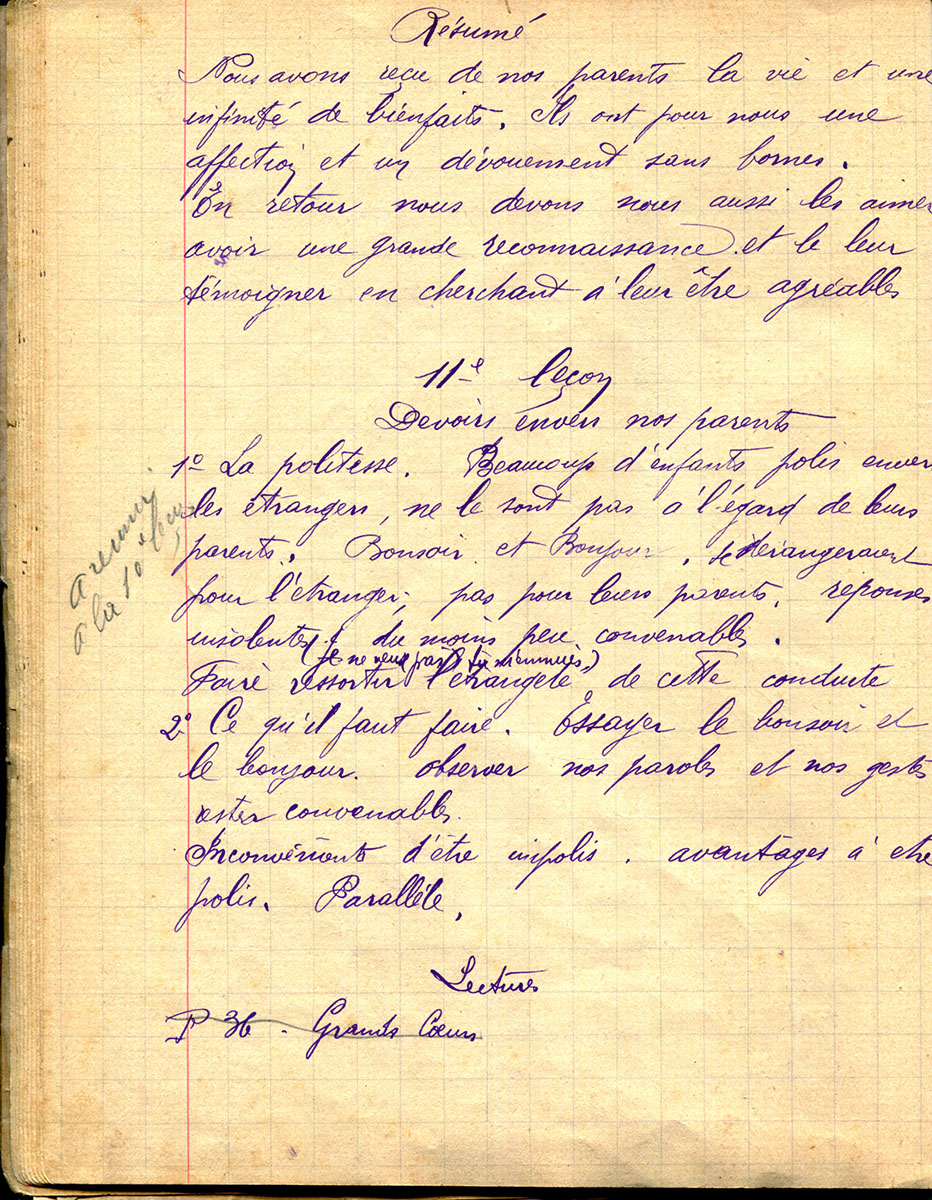 Résumé
Nous avons reçu de nos parents la vie et une
infinité de bienfaits. Ils ont pour nous une
affection et un dévouement sans bornes.
En retour nous devons nous aussi les aimer
avoir une grande reconnaissance et le leur
témoigner en cherchant à leur être agréables
11e leçon
Devoirs envers nos parents
1o La politesse. Beaucoup d'enfants polis envers
les étrangers, ne le sont pas à l'égard de leurs
parents. Bonsoir et Bonjour. se dérangeraient
pour l'étranger, pas pour leurs parents, réponses
insolentes, du moins peu convenables.
(je ne veux pas, tu m'ennuies)
Faire ressortir l'étrangeté de cette conduite
à réunir
à la 10e leçon
2o Ce qu'il faut faire. Essayer le bonsoir et
le bonjour. Observer nos paroles et nos gestes
rester convenables.
Inconvénients d'être impolis. avantages à être
polis. Parallèle.
Lectures
P 36 - Grands Cœurs